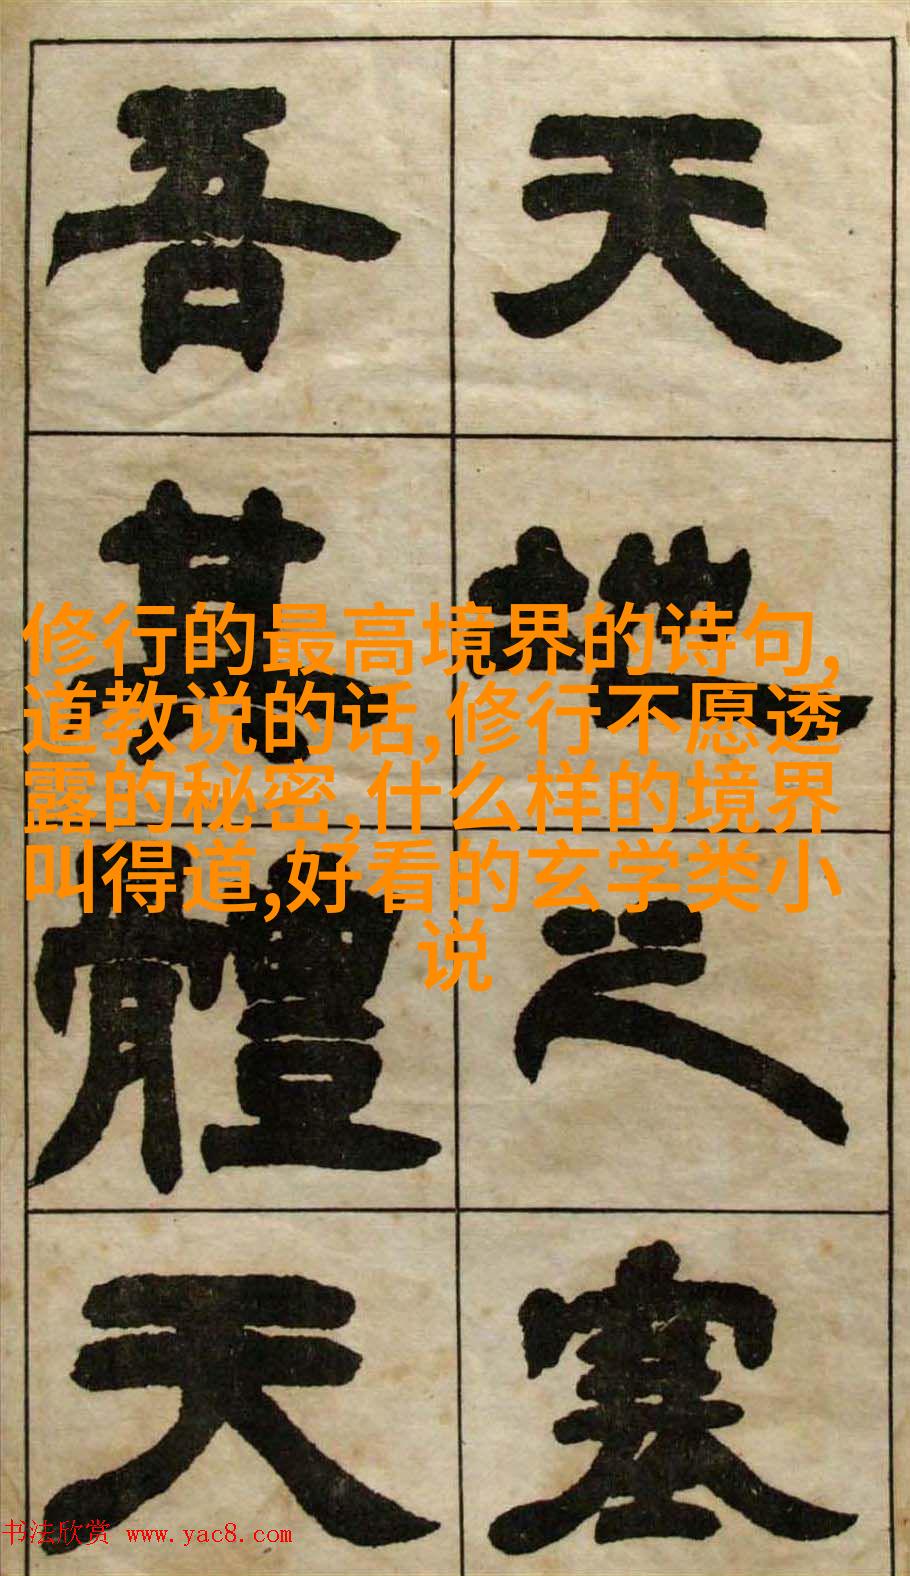 天地之塞
吾其體天
修行的最高境界的诗句,
道教说的话,修行不愿透
露的秘密,什么样的境界
叫得道,好看的玄学类小
说
书法欣赏 www.yac8.com